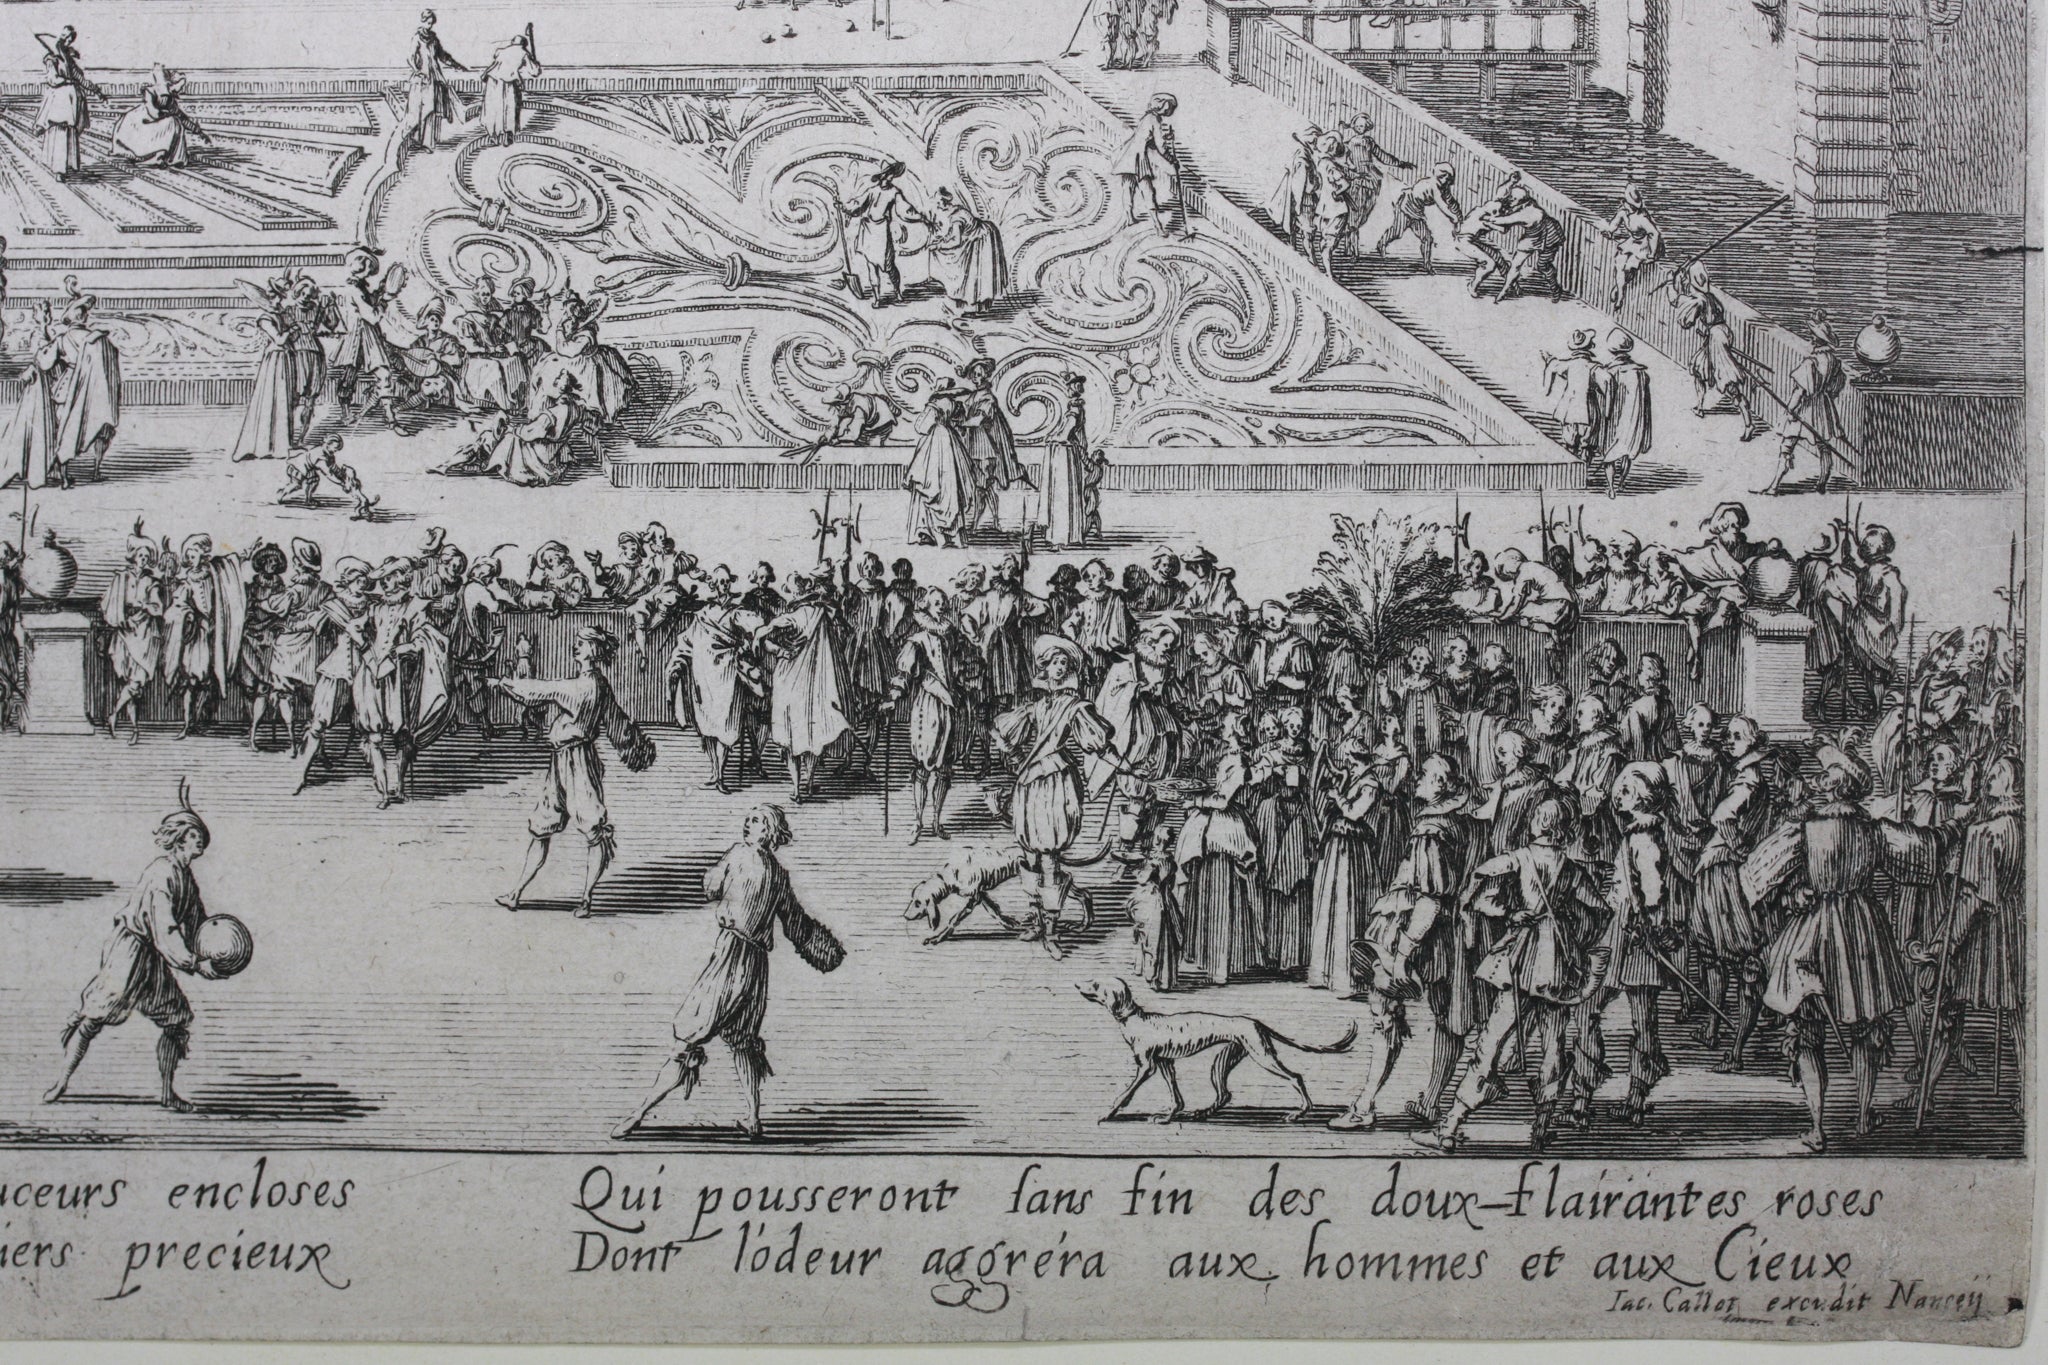 uceurs encloses
iers precieux
Qui pousseront sans fin des doux-flairantes roses
Dont l'odeur aggréra aux hommes et aux Cieux
Iac. Callot excudit Nanceij